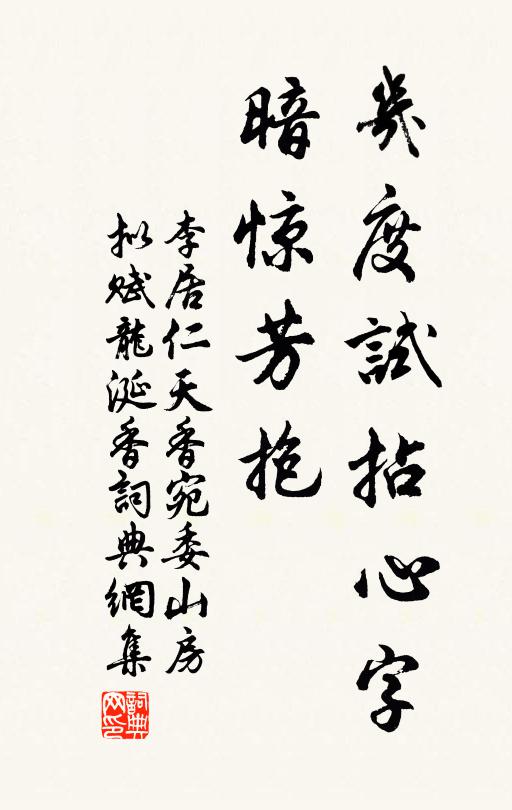 幾度試拈心字
暗惊芳抱
李居仁天香宛委山房
拟赋龍涎香詞典網集
詞典网印